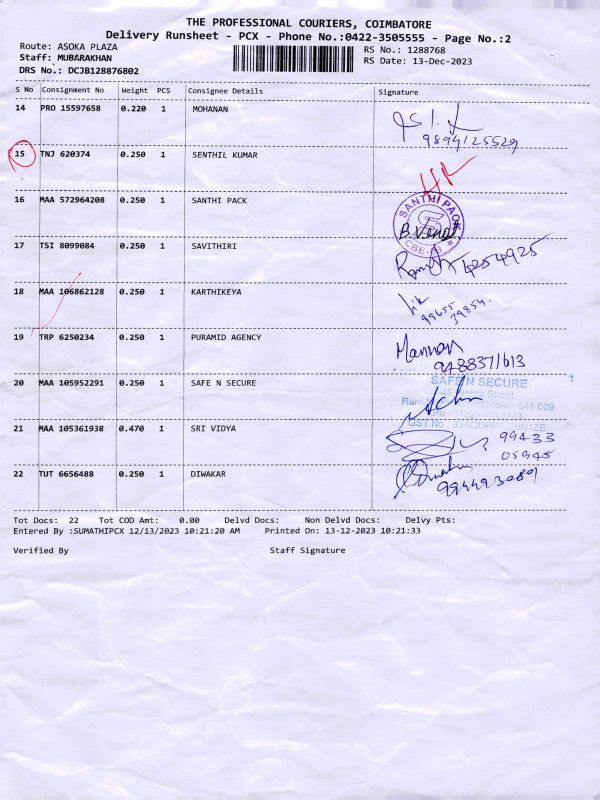 THE PROFESSIONAL COURIERS, COIMBATORE
Delivery Runsheet - PCX - Phone No.:0422-3505555 - Page No.:2
Route: ASOKA PLAZA
RS No.: 1288768
Staff: MUBARAKHAN
RS Date: 13-Dec-2023
DRS No.: DCJB128876802
S No Consignment No Weight PCS Consignee Details Signature
14 PRO 15597658 0.220 1 MOHANAN
9894125529
15 TNJ 620374 0.250 1 SENTHIL KUMAR
16 MAA 572964208 0.250 1 SANTHI PACK
SANTHI PACK
CBE-09
17 TSI 8099084 0.250 1 SAVITHIRI
4254925
18 MAA 106862128 0.250 1 KARTHIKEYA
99655
39854
19 TRP 6250234 0.250 1 PURAMID AGENCY
Mannan
9488371613
20 MAA 105952291 0.250 1 SAFE N SECURE
SAFE N SECURE
641 009
GST No
21 MAA 105361938 0.470 1 SRI VIDYA
99433
05945
22 TUT 6656488 0.250 1 DIWAKAR
Tot Docs: 22 Tot COD Amt: 0.00 Delvd Docs: Non Delvd Docs: Delvy Pts:
Entered By :SUMATHIPCX 12/13/2023 10:21:20 AM Printed On: 13-12-2023 10:21:33
Verified By Staff Signature